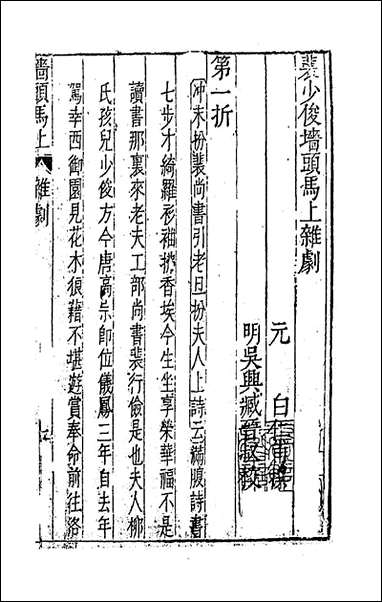 裴少俊墻頭馬上雜劇
元 白仁甫撰
明吳興臧晉叔校
第一折
冲末扮裴尚書引老旦扮夫人上詩云滿腹詩書
七步才綺羅衫袖拂香埃今生坐享榮華福不是
讀書那裏來老夫工部尚書裴行儉是也夫人柳
氏孩兒少俊方今唐高宗即位儀鳳三年自去年
駕幸西御園見花木狼藉不堪遊賞奉命前往洛
墻頭馬上 雜劇